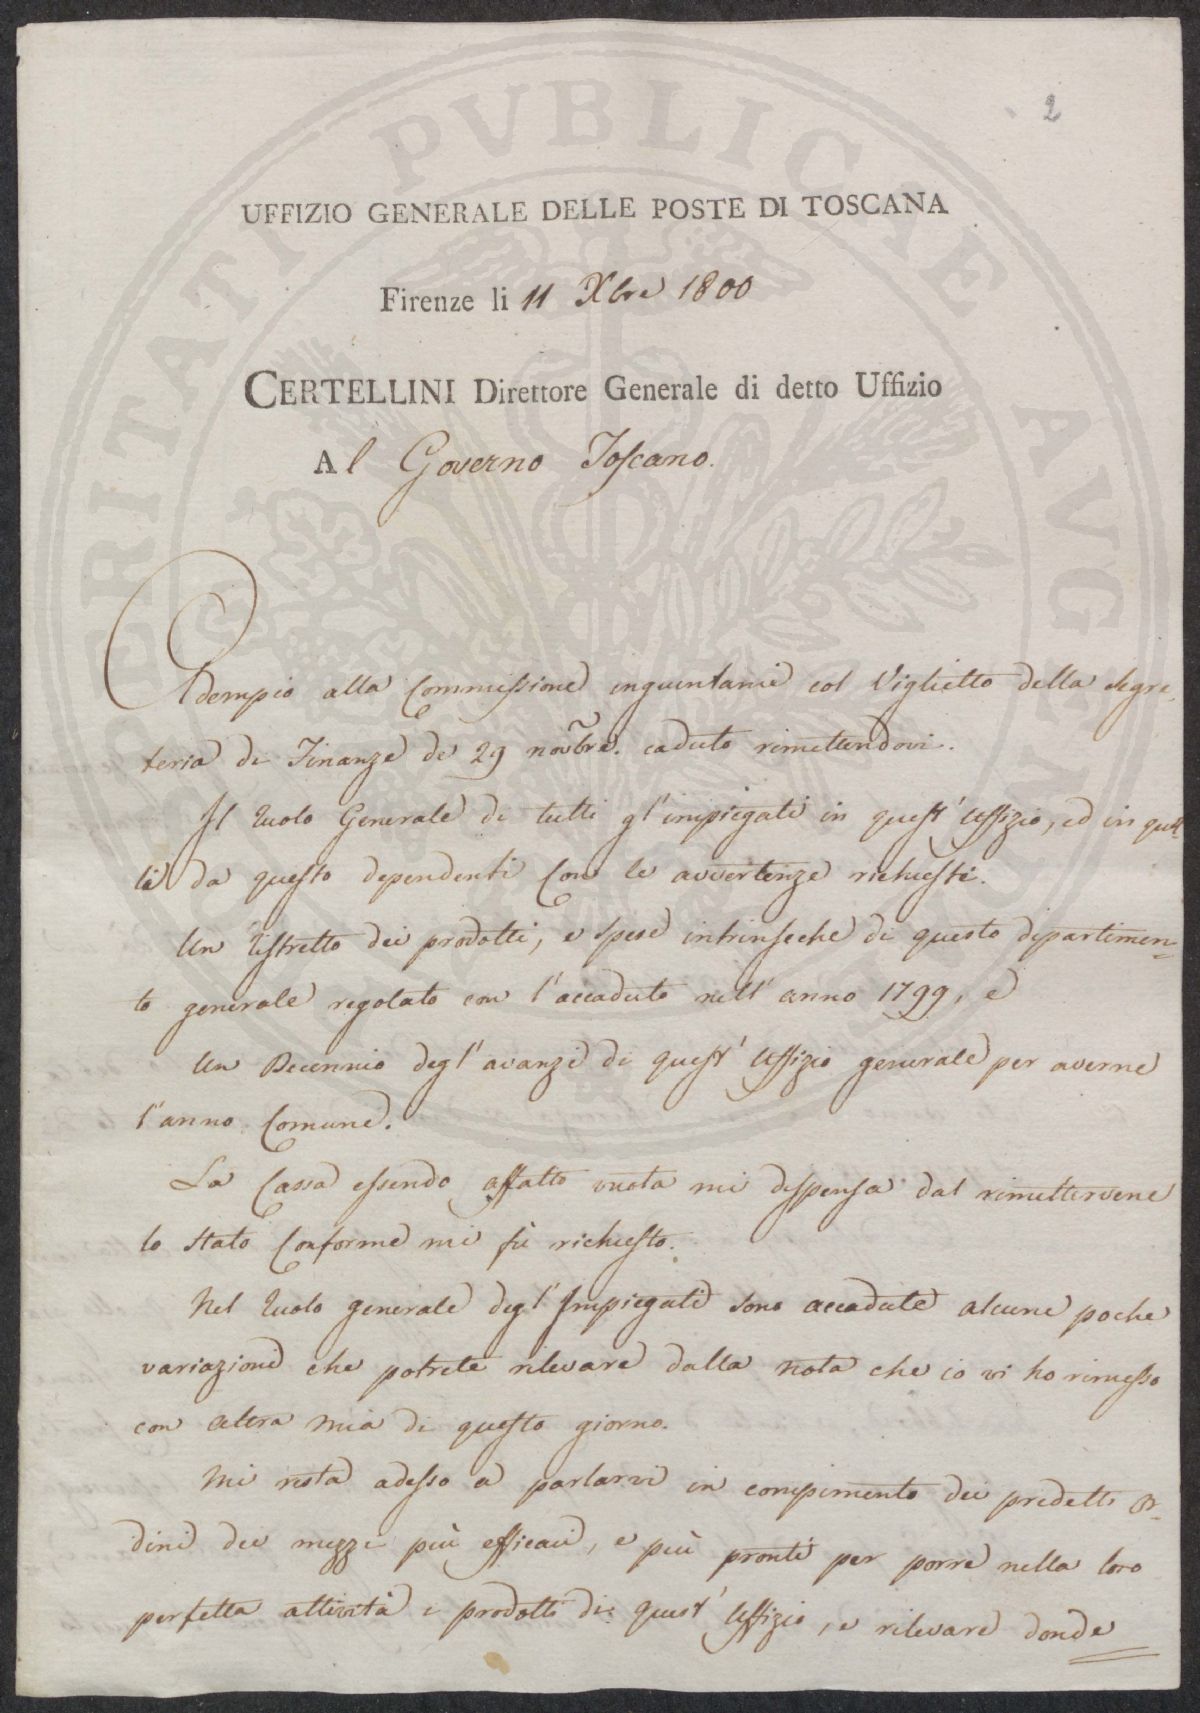 2
UFFIZIO GENERALE DELLE POSTE DI TOSCANA
Firenze li 11 Xbre 1800
CERTELLINI Direttore Generale di detto Uffizio
Al Governo Toscano.
Adempio alla Commissione ingiuntami col Viglietto della Segre-
teria di Finanze de 29 novbre. caduto rimettendovi.
Il Ruolo Generale di tutti gl'impiegati in quest'Uffizio, ed in quel-
li da questo dependenti Con le avvertenze richieste.
Un Ristretto dei prodotti, e spese intrinseche di questo dipartimen-
to generale regolato con l'accaduto nell'anno 1799, e
Un Decennio degl'avanzi di quest'Uffizio generale per averne
l'anno Comune.
La Cassa essendo affatto vuota mi dispensa dal rimettervene
lo stato Conforme mi fù richiesto.
Nel Ruolo generale degl'Impiegati sono accadute alcune poche
variazioni che potrete rilevare dalla nota che io vi ho rimesso
con altra mia di questo giorno.
Mi resta adesso a parlarvi in compimento dei predetti Or-
dini dei mezzi più efficaci, e più pronti per porre nella loro
perfetta attività i prodotti di quest'Uffizio, e rilevare donde
PROSPERITATI PVBLICAE AVG